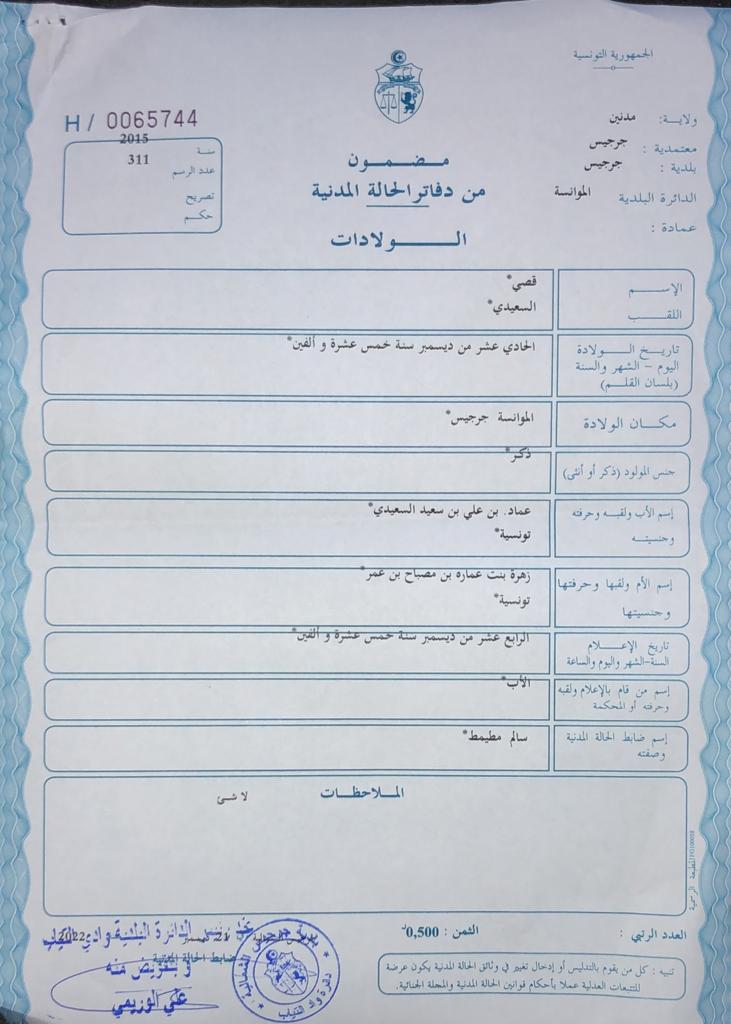 الجمهورية التونسية
ولاية: مدنين
معتمدية : جرجيس
بلدية : جرجيس
الدائرة البلدية الموانسة
عمادة :
H / 0065744
سنة 2015
عدد الرسم 311
تصريح
حكم
مضمون
من دفاتر الحالة المدنية
الولادات
الإسم قصي*
اللقب السعيدي*
تاريخ الولادة
اليوم - الشهر والسنة
(بلسان القلم)
الحادي عشر من ديسمبر سنة خمس عشرة و ألفين*
مكان الولادة الموانسة جرجيس*
جنس المولود (ذكر أو أنثى) ذكر*
إسم الأب ولقبه وحرفته
وجنسيته
عماد. بن علي بن سعيد السعيدي*
تونسية*
إسم الأم ولقبها وحرفتها
وجنسيتها
زهرة بنت عماره بن مصباح بن عمر*
تونسية*
تاريخ الإعلام
السنة-الشهر واليوم والساعة
الرابع عشر من ديسمبر سنة خمس عشرة و ألفين*
إسم من قام بالإعلام ولقبه
وحرفته أو المحكمة
الأب*
إسم ضابط الحالة المدنية
وصفته
سالم مطيمط*
الملاحظات
لا شئ
المطبعة الرسمية
العدد الرتبي :
الثمن : 0,500د
تنبيه : كل من يقوم بالتدليس أو إدخال تغيير في وثائق الحالة المدنية يكون عرضة
للتتبعات العدلية عملا بأحكام قوانين الحالة المدنية والمجلة الجنائية.
21 ديسمبر 2022
ضابط الحالة المدنية
الدائرة البلدية وادي
و بتفويض منه
علي الوريمي